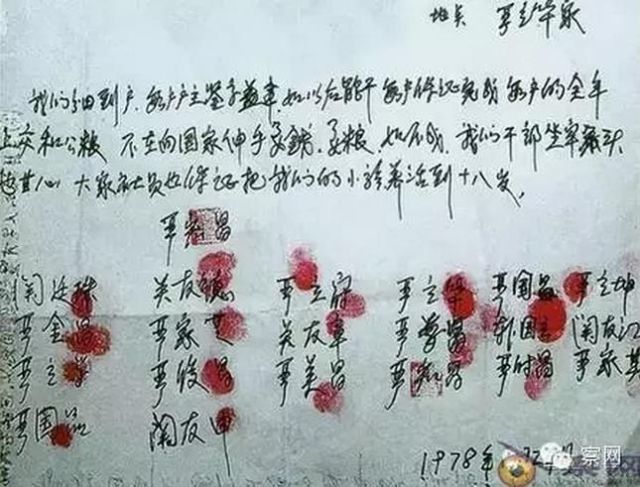 地点 严立华家
我们分田到户,每户户主签字盖章,如以后能干每户保证完成每户的全年
上交和公粮 不在向国家伸手要钱要粮,如不成,我们干部坐牢杀头
也甘心,大家社员也保证把我们的小孩养活到十八岁。
严宏昌
关廷珠 关友德 严立富 严立华 严国昌 严立坤
严金昌 严家芝 关友章 严学昌 韩国云 关友江
严立学 严俊昌 严美昌 严宏昌 严付昌 严家其
严国品 关友申
1978年12月
察网